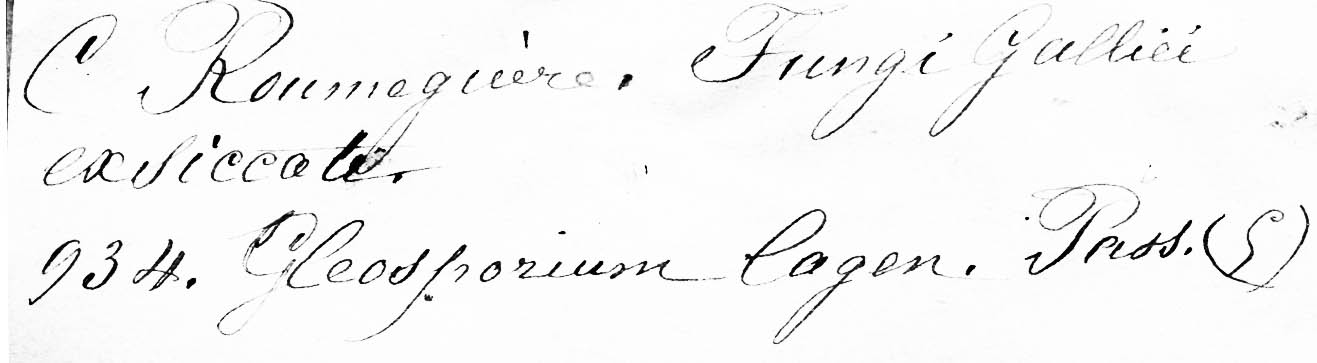 C Roumeguère. Fungi Gallici
exsiccati.
934. Gleosporium lagen. Pass. (G)